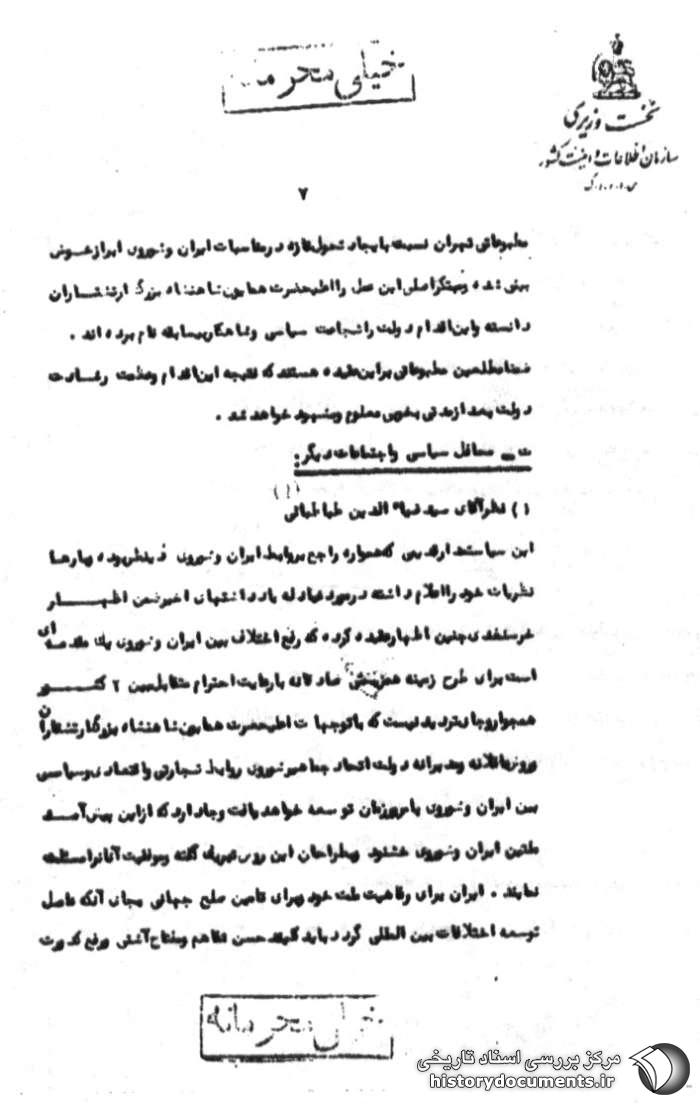 خیلی محرمانه
نخست وزیری
سازمان اطلاعات و امنیت کشور
س.ا.و.ا.ک
۷
مطبوعاتی تهران نسبت بایجاد تحول تازه در مناسبات ایران و شوروی ابراز خوش
بینی شده و مبتکر اصلی این عمل را اعلیحضرت همایون شاهنشاه بزرگ ارتشتاران
دانسته و این اقدام دولت را شجاعت سیاسی و شاهکار بیسابقه نام برده اند .
ضمنا مطلعین مطبوعاتی براین عقیده هستند که نتیجه این اقدام و عظمت رشادت
دولت بعد از مدتی بخوبی معلوم و مشهود خواهد شد .
ت ــ محافل سیاسی و اجتماعات دیگر :
(۱)
۱) نظر آقای سید ضیاء الدین طباطبائی
این سیاستمدار قدیمی که همواره راجع بروابط ایران و شوروی ذینظر بوده و بارها
نظریات خود را اعلام داشته در مورد مبادله یادداشتهای اخیر ضمن اظهــار
خرسندی چنین اظهار عقیده کرده که رفع اختلاف بین ایران و شوروی یک مقدمه ای
است برای طرح زمینه همزیستی صادقانه با رعایت احترام متقابل بین ۲ کشــور
همجوار و جای تردید نیست که با توجهات اعلیحضرت همایون شاهنشاه بزرگ ارتشتاران
و روش عاقلانه و مدبرانه دولت اتحاد جماهیر شوروی روابط تجارتی و اقتصادی و سیاسی
بین ایران و شوروی با مرور زمان توسعه خواهد یافت و جا دارد که از این پیش آمــد
ملتین ایران و شوروی خشنود و بطراحان این روش تبریک گفته و موفقیت آنانرا مسئلت
نمایند . ایران برای رفاهیت ملت خود و برای تامین صلح جهانی بجای آنکه عامل
توسعه اختلافات بین المللی گردد باید کلید حسن تفاهم و مفتاح آشتی و رفع کدورت
خیلی محرمانه
مرکز بررسی اسناد تاریخی
historydocuments.ir